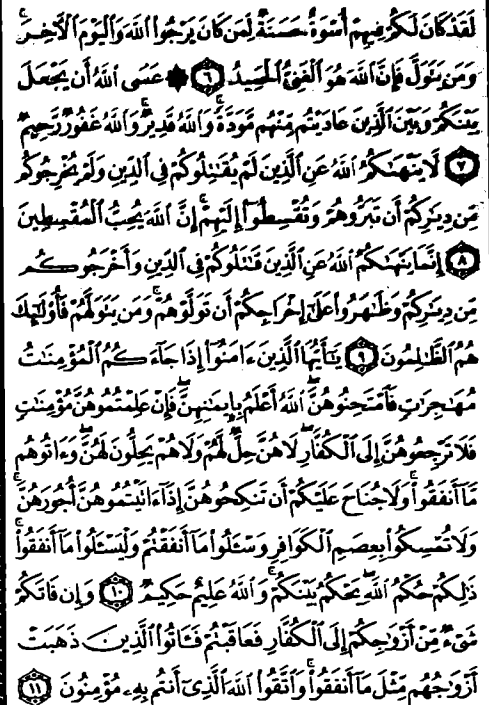 لَقَدْ كَانَ لَكُمْ فِيهِمْ أُسْوَةٌ حَسَنَةٌ لِّمَن كَانَ يَرْجُوا۟ ٱللَّهَ وَٱلْيَوْمَ ٱلْـَٔاخِرَ ۚ
وَمَن يَتَوَلَّ فَإِنَّ ٱللَّهَ هُوَ ٱلْغَنِىُّ ٱلْحَمِيدُ ﴿٦﴾ ۞ عَسَى ٱللَّهُ أَن يَجْعَلَ
بَيْنَكُمْ وَبَيْنَ ٱلَّذِينَ عَادَيْتُم مِّنْهُم مَّوَدَّةً ۚ وَٱللَّهُ قَدِيرٌ ۚ وَٱللَّهُ غَفُورٌ رَّحِيمٌ
﴿٧﴾ لَّا يَنْهَىٰكُمُ ٱللَّهُ عَنِ ٱلَّذِينَ لَمْ يُقَـٰتِلُوكُمْ فِى ٱلدِّينِ وَلَمْ يُخْرِجُوكُم
مِّن دِيَـٰرِكُمْ أَن تَبَرُّوهُمْ وَتُقْسِطُوٓا۟ إِلَيْهِمْ ۚ إِنَّ ٱللَّهَ يُحِبُّ ٱلْمُقْسِطِينَ
﴿٨﴾ إِنَّمَا يَنْهَىٰكُمُ ٱللَّهُ عَنِ ٱلَّذِينَ قَـٰتَلُوكُمْ فِى ٱلدِّينِ وَأَخْرَجُوكُم
مِّن دِيَـٰرِكُمْ وَظَـٰهَرُوا۟ عَلَىٰٓ إِخْرَاجِكُمْ أَن تَوَلَّوْهُمْ ۚ وَمَن يَتَوَلَّهُمْ فَأُو۟لَـٰٓئِكَ
هُمُ ٱلظَّـٰلِمُونَ ﴿٩﴾ يَـٰٓأَيُّهَا ٱلَّذِينَ ءَامَنُوٓا۟ إِذَا جَآءَكُمُ ٱلْمُؤْمِنَـٰتُ
مُهَـٰجِرَٰتٍ فَٱمْتَحِنُوهُنَّ ۖ ٱللَّهُ أَعْلَمُ بِإِيمَـٰنِهِنَّ ۖ فَإِنْ عَلِمْتُمُوهُنَّ مُؤْمِنَـٰتٍ
فَلَا تَرْجِعُوهُنَّ إِلَى ٱلْكُفَّارِ ۖ لَا هُنَّ حِلٌّ لَّهُمْ وَلَا هُمْ يَحِلُّونَ لَهُنَّ ۖ وَءَاتُوهُم
مَّآ أَنفَقُوا۟ ۚ وَلَا جُنَاحَ عَلَيْكُمْ أَن تَنكِحُوهُنَّ إِذَآ ءَاتَيْتُمُوهُنَّ أُجُورَهُنَّ ۚ
وَلَا تُمْسِكُوا۟ بِعِصَمِ ٱلْكَوَافِرِ وَسْـَٔلُوا۟ مَآ أَنفَقْتُمْ وَلْيَسْـَٔلُوا۟ مَآ أَنفَقُوا۟ ۚ
ذَٰلِكُمْ حُكْمُ ٱللَّهِ ۖ يَحْكُمُ بَيْنَكُمْ ۚ وَٱللَّهُ عَلِيمٌ حَكِيمٌ ﴿١٠﴾ وَإِن فَاتَكُمْ
شَىْءٌ مِّنْ أَزْوَٰجِكُمْ إِلَى ٱلْكُفَّارِ فَعَاقَبْتُمْ فَـَٔاتُوا۟ ٱلَّذِينَ ذَهَبَتْ
أَزْوَٰجُهُم مِّثْلَ مَآ أَنفَقُوا۟ ۚ وَٱتَّقُوا۟ ٱللَّهَ ٱلَّذِىٓ أَنتُم بِهِۦ مُؤْمِنُونَ ﴿١١﴾